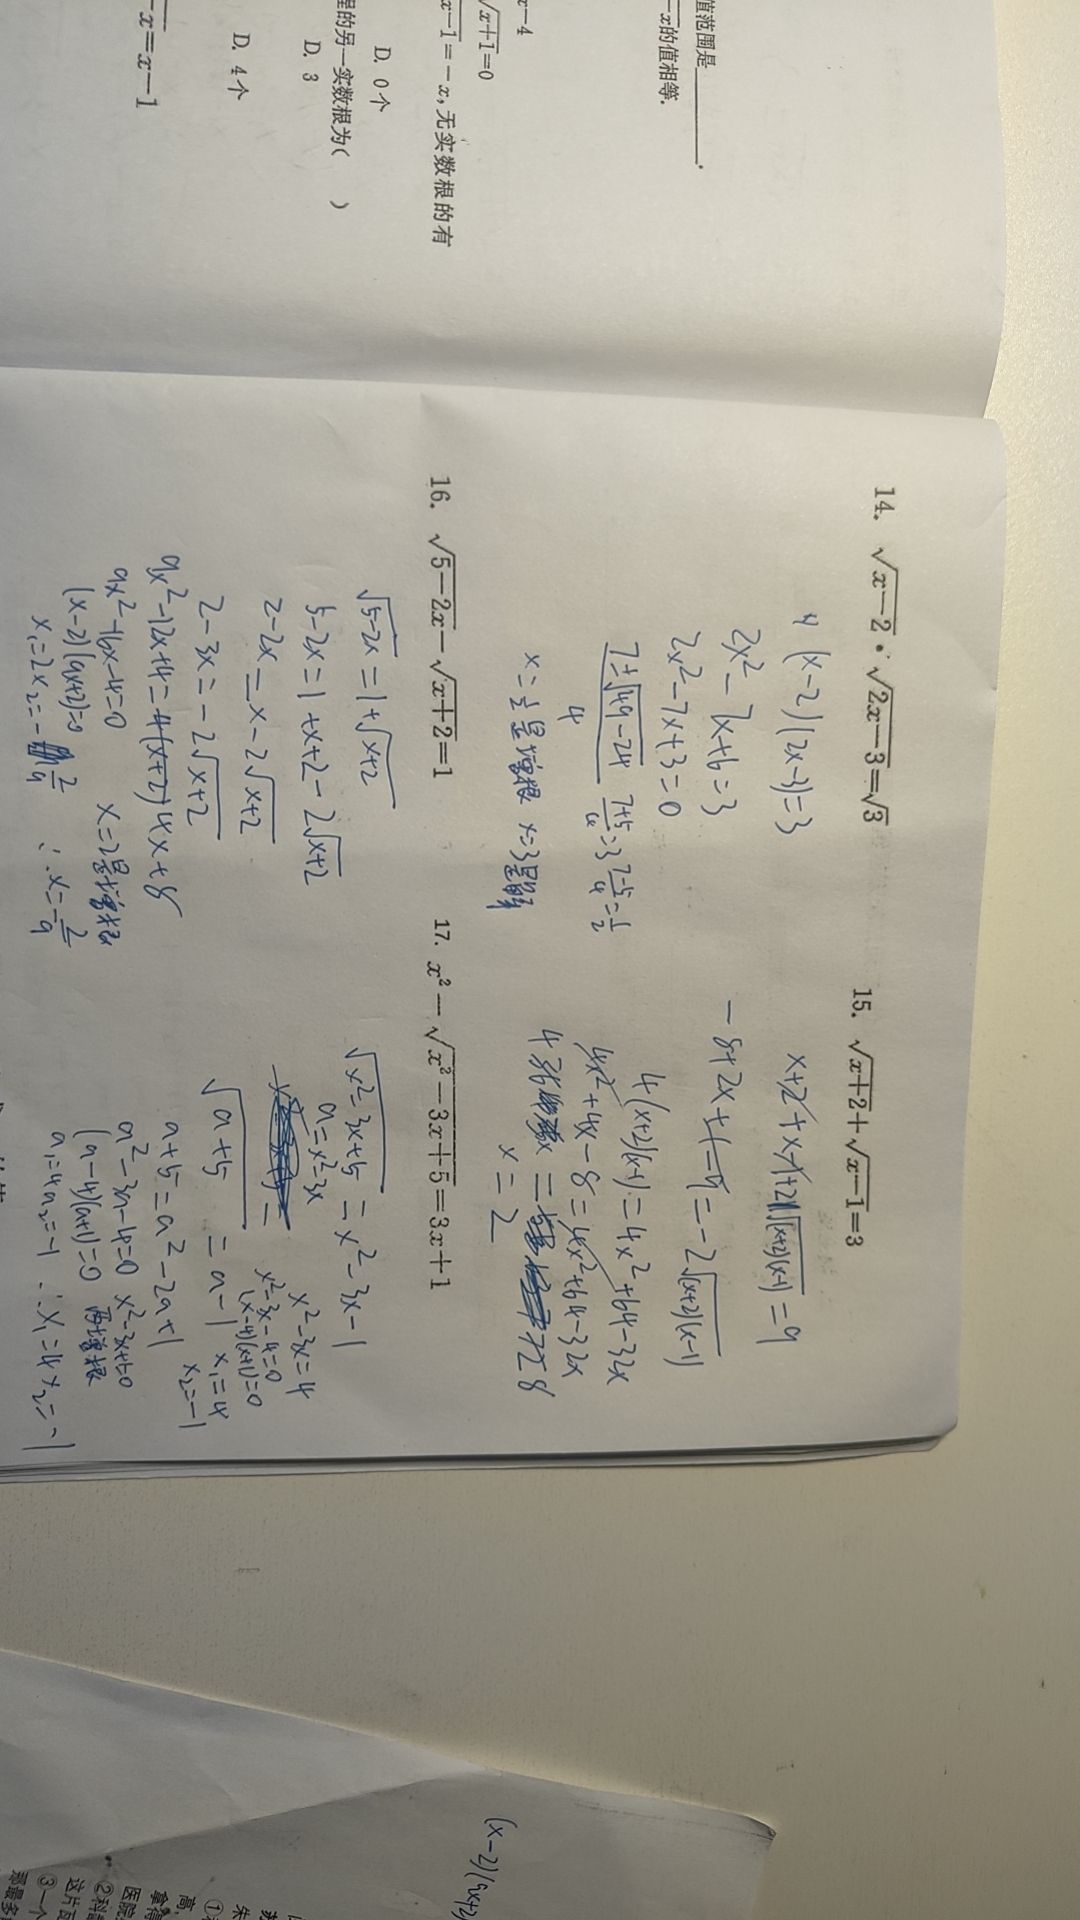 值范围是______.
-x的值相等.
x-4
√x+1=0
x-1=-x,无实数根的有
D. 0个
程的另一实数根为( )
D. 3
D. 4个
-x=x-1
14. √x-2·√2x-3=√3
(x-2)(2x-3)=3
2x²-7x+6=3
2x²-7x+3=0
7±√49-24
4
7+5/4=3 7-5/4=1/2
x=1/2是增根 x=3是解
15. √x+2+√x-1=3
x+2+x-1+2√(x+2)(x-1)=9
-8+2x=-2√(x+2)(x-1)
4(x+2)(x-1)=4x²+64-32x
4x²+4x-8=4x²+64-32x
x=2
16. √5-2x-√x+2=1
√5-2x=1+√x+2
5-2x=1+x+2-2√x+2
2-2x=x-2√x+2
2-3x=-2√x+2
9x²-12x+4=4(x+2)4x+8
9x²-16x-4=0
x=2是增根
(x-2)(9x+2)=0
x₁=2x₂=-2/9
∴x=-2/9
17. x²-√x²-3x+5=3x+1
√x²-3x+5=x²-3x-1
a=x²-3x
√a+5=a-1
a+5=a²-2a+1
a²-3a-4=0
(a-4)(a+1)=0
a₁=4a₂=-1
x²-3x=4
x²-3x-4=0
(x-4)(x+1)=0
x₁=4
x₂=-1
x²-3x+1=0
∴x₁=4 x₂=-1
(x-2)(9x+2)